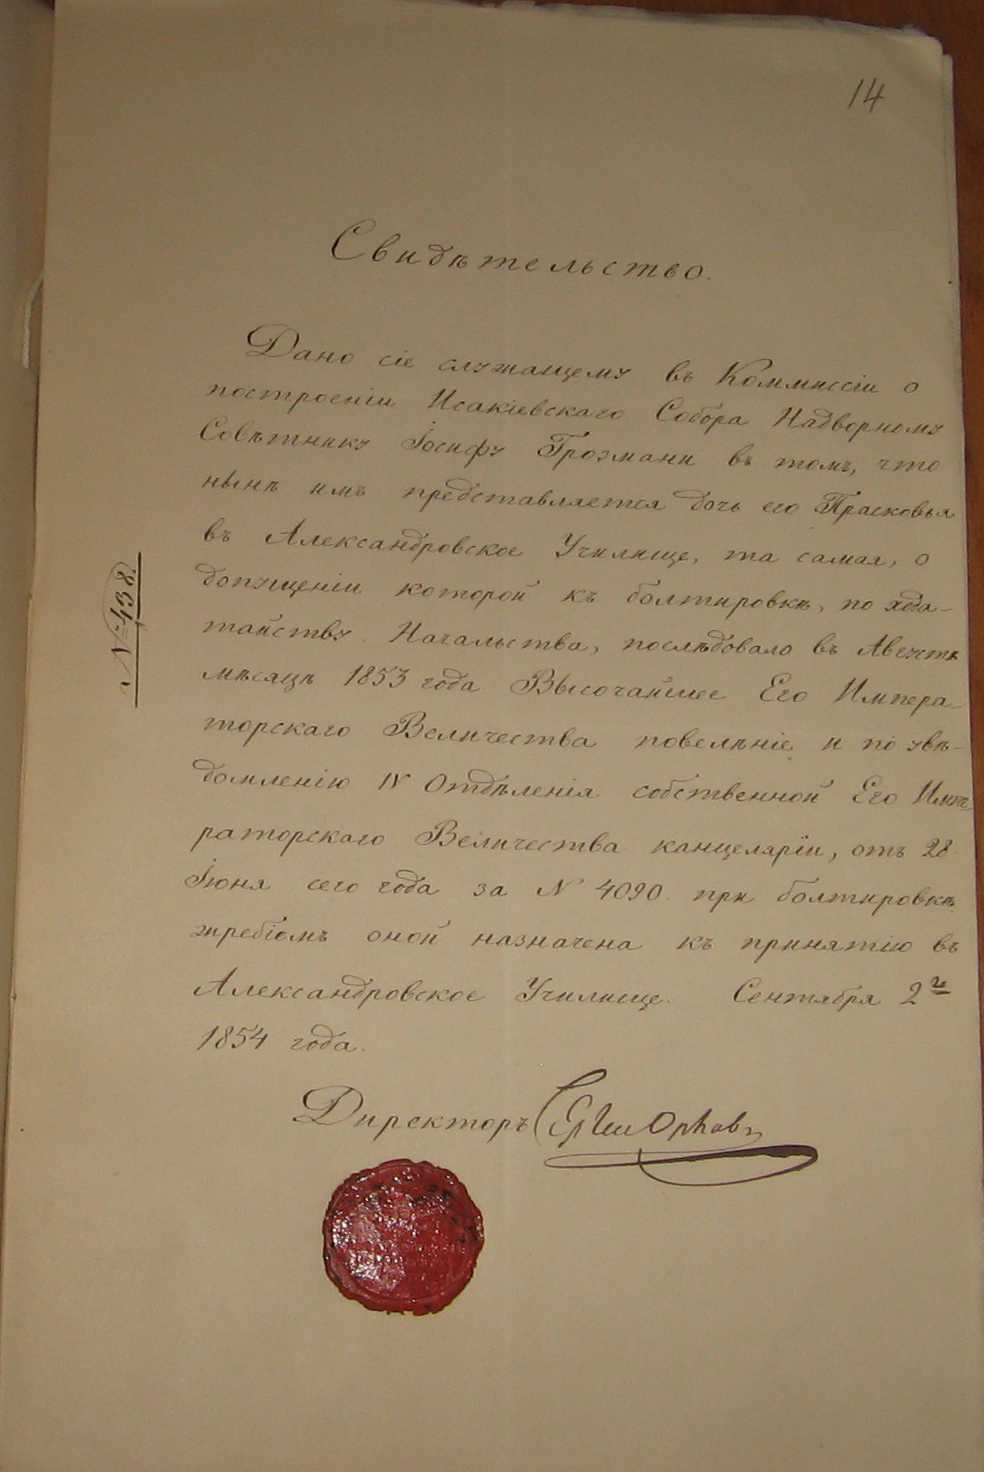 14
Свидѣтельство.
Дано сіе служащему въ Коммиссіи о
построеніи Исакіевскаго Собора Надворному
Совѣтнику Іосифу Грозмани въ томъ, что
нынѣ имъ представляется дочь его Прасковья
въ Александровское Училище, та самая, о
допущеніи которой къ болтировкѣ, по хода-
тайству Начальства, послѣдовало въ Августѣ
мѣсяцѣ 1853 года Высочайшее Его Импера-
торскаго Величества повелѣніе и по увѣ-
домленію IV Отдѣленія собственной Его Импе
раторскаго Величества канцеляріи, отъ 28
Іюня сего года за N 4090. при болтировкѣ
жребіомъ оной назначена къ принятію въ
Александровское Училище. Сентября 2го
1854 года.
Директоръ
№ 438.